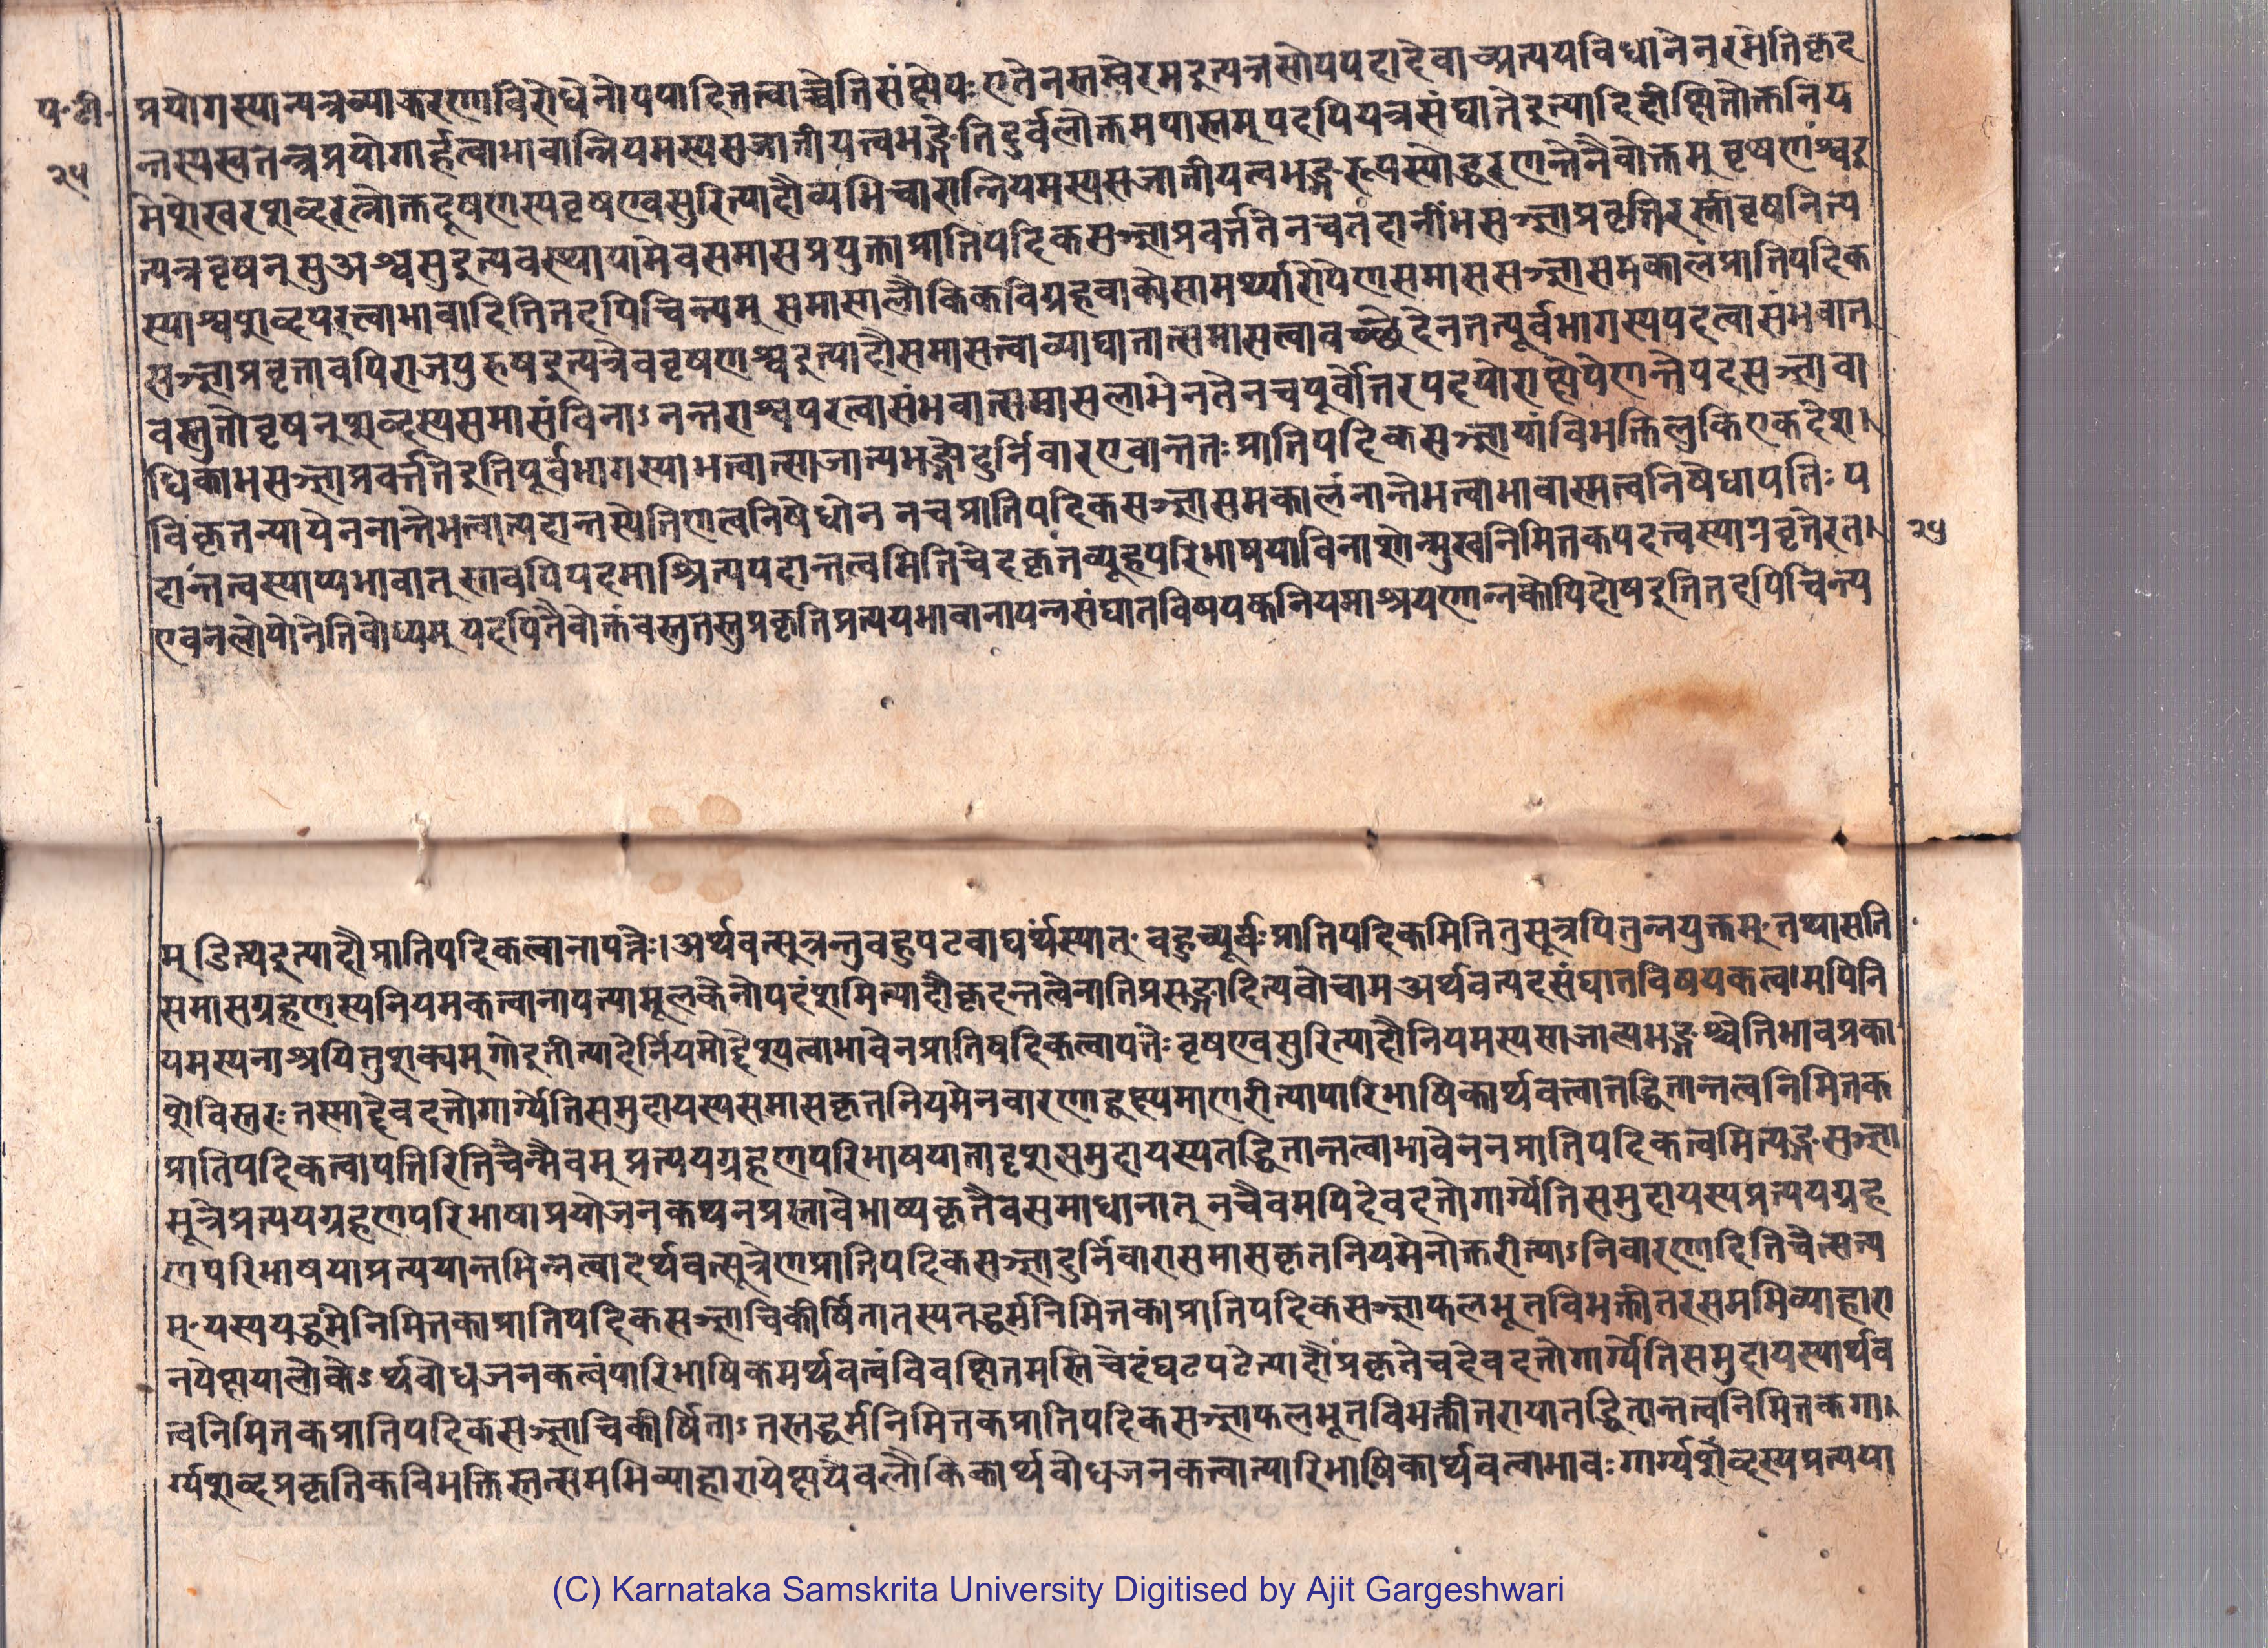 प॰टी॰
२५
प्रयोगस्यान्यत्रव्याकरणाविरोधेनोपपादितत्वाच्चेतिसंक्षेपः एतेनस्तम्बेरमइत्यत्रसोपपदादेवाच्प्रत्ययविधानेनरमेतिकृद
न्तस्यस्वतन्त्रप्रयोगार्हत्वाभावान्नियमस्यसजातीयत्वभङ्गेतिदुर्बलोक्तमपास्तम् यदपियत्रसंघातेइत्यादिदीक्षितोक्तनिय
मेशेखरशब्दरत्नोक्तदूषणस्यवृषण्वसुरित्यादौव्यभिचारान्नियमस्यसजातीयत्वभङ्गरूपस्योद्धरणन्तेनैवोक्तम् वृषणश्वइ
त्यत्रवृषन्सुअश्वसुइत्यवस्थायामेवसमासप्रयुक्ताप्रातिपदिकसञ्ज्ञाप्रवर्त्ततेनचतदानींभसञ्ज्ञाप्रवृत्तिरस्तीवृषनित्य
स्याश्वशब्दपरत्वाभावादितितदपिचिन्त्यम् समासालौकिकविग्रहवाक्येसामर्थ्यारोपेणसमाससञ्ज्ञासमकालंप्रातिपदिक
सञ्ज्ञाप्रवृत्तावपिराजपुरुषइत्यत्रैववृषणश्वइत्यादौसमासत्वाव्याघातात्समासत्वावच्छेदेनतत्पूर्वभागस्यपदत्वासंभवात्
वस्तुतोवृषन्शब्दस्यसमासंविनाऽनन्तराश्वपरत्वासंभवात्समासलाभेनतेनचपूर्वोत्तरपदयोराक्षेपेणान्तेपदसञ्ज्ञावा
धिकाभसञ्ज्ञाप्रवर्त्ततेइतिपूर्वभागस्याभत्वात्साजात्यभङ्गोदुर्निवारएवान्ततः प्रातिपदिकसञ्ज्ञायांविभक्तिलुकिएकदेश।
विकृतन्यायेननान्तेभत्वात्पदान्तस्येतिणत्वनिषेधोन नचप्रातिपदिकसञ्ज्ञासमकालंनान्तेभत्वाभावास्मत्वनिषेधापत्तिः प
दान्तत्वस्याप्यभावात् स्तावपिपदमाश्रित्यपदान्तत्वमितिचेदकृतव्यूहपरिभाषयाविनाशोन्मुखनिमित्तकपदत्वस्याप्रवृत्तेरत।
एवनलोपोनेतिबोध्यम् यदपितेनैवोक्तंवस्तुतस्तुप्रकृतिप्रत्ययभावानापन्नसंघातविषयकनियमाश्रयणान्नकोपिदोषइतितदपिचिन्त्य
२५
म् डित्थइत्यादौप्रातिपदिकत्वानापत्तेः। अर्थवत्सूत्रन्तुबहुपटवाद्यर्थंस्यात् बहुच्पूर्वः प्रातिपदिकमितितुसूत्रयितुन्नयुक्तम् तथासति
समासग्रहणस्यनियमकत्वानापत्त्यामूलकेनोपदंशमित्यादौकृदन्तत्वेनातिप्रसङ्गादित्यवोचाम अर्थवत्पदसंघातविषयकत्वमपिनि
यमस्यनाश्रयितुंशक्यम् गौइतीत्यादेर्नियमोद्देश्यत्वाभावेनप्रातिपदिकत्वापत्तेः वृषण्वसुरित्यादौनियमस्यसाजात्यभङ्गश्चेतिभावप्रका
शेविस्तरः तस्माद्देवदत्तोगार्ग्येतिसमुदायस्यसमासकृतनियमेनवारणाद्वक्ष्यमाणरीत्यापारिभाषिकार्थवत्वात्तद्धितान्तत्वनिमित्तक
प्रातिपदिकत्वापत्तिरितिचेन्मैवम् प्रत्ययग्रहणपरिभाषयातादृशसमुदायस्यतद्धितान्तत्वाभावेननप्रातिपदिकत्वमित्यङ्गसञ्ज्ञा
सूत्रेप्रत्ययग्रहणपरिभाषाप्रयोजनकथनप्रस्तावेभाष्यकृतैवसमाधानात् नचैवमपिदेवदत्तोगार्ग्येतिसमुदायस्यप्रत्ययग्रह
णपरिभाषयाप्रत्ययान्तभिन्नत्वादर्थवत्सूत्रेणप्रातिपदिकसञ्ज्ञादुर्निवारासमासकृतनियमेनोक्तरीत्याऽनिवारणादितिचेत्सत्य
म् यस्ययद्धर्मनिमित्तकाप्रातिपदिकसञ्ज्ञाचिकीर्षितातस्यतद्धर्मनिमित्तकाप्रातिपदिकसञ्ज्ञाफलभूतविभक्तीतरसमभिव्याहारा
नपेक्षयालोकेऽर्थबोधजनकत्वंपारिभाषिकमर्थवत्वंविवक्षितमस्तिचेदंघटपटेत्यादौप्रकृतेचदेवदत्तोगार्ग्येतिसमुदायस्यार्थव
त्वनिमित्तकप्रातिपदिकसञ्ज्ञाचिकीर्षिताऽतस्तद्धर्मनिमित्तकप्रातिपदिकसञ्ज्ञाफलभूतविभक्तीतरायातद्धितान्तत्वनिमित्तकगा।
र्ग्यशब्दप्रकृतिकविभक्तिस्तत्समभिव्याहारापेक्षयैवलौकिकार्थबोधजनकत्वात्पारिभाषिकार्थवत्वाभावः गार्ग्यशब्दस्यप्रत्यया
(C) Karnataka Samskrita University Digitised by Ajit Gargeshwari